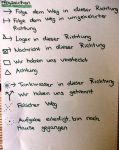 Wegzeichen
→ Folge dem Weg in dieser Richtung
Folge dem Weg in umgekehrter
Richtung
Lager in dieser Richtung
Nachricht in dieser Richtung
Wir haben uns versteckt
△ Achtung
Trinkwasser in dieser Richtung
Wir haben uns getrennt
Falscher Weg
Aufgabe erledigt, bin nach
Hause gegangen